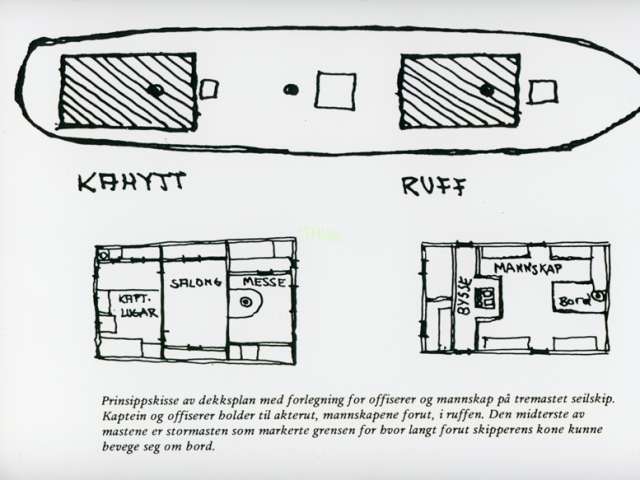 KAHYTT
RUFF
KAPT.
LUGAR
SALONG
MESSE
BYSSE
MANNSKAP
Bord
Prinsippskisse av dekksplan med forlegning for offiserer og mannskap på tremastet seilskip.
Kaptein og offiserer holder til akterut, mannskapene forut, i ruffen. Den midterste av
mastene er stormasten som markerte grensen for hvor langt forut skipperens kone kunne
bevege seg om bord.